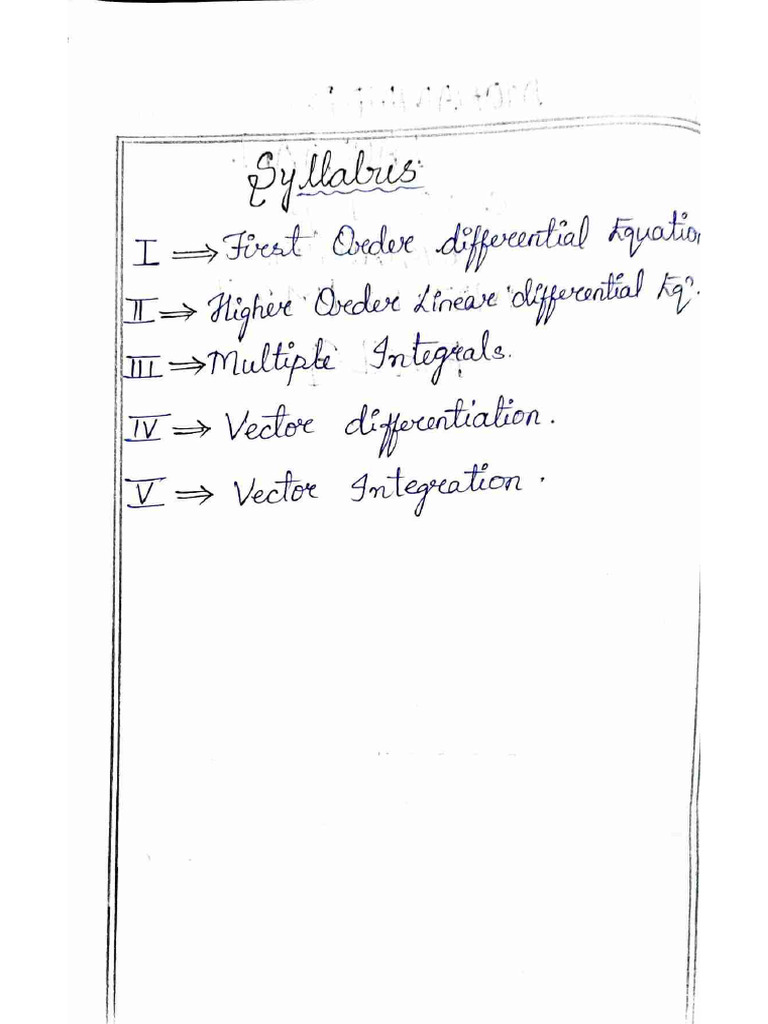 Syllabus
I ⇒ First Order differential Equation
II ⇒ Higher Order Linear differential Eqⁿ.
III ⇒ Multiple Integrals.
IV ⇒ Vector differentiation.
V ⇒ Vector Integration.